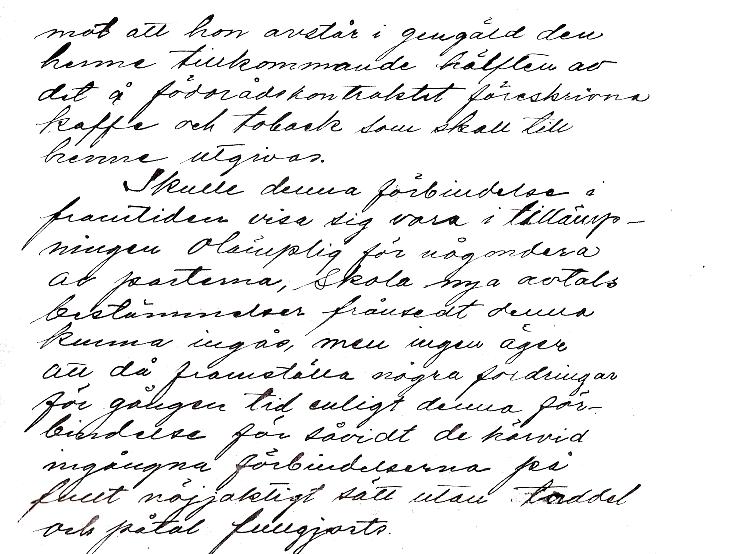 mot att hon avstår i gengäld den
henne tillkommande hälften av
det å födorådskontraktet föreskrivna
kaffe och toback som skall till
henne utgivas.
Skulle denna förbindelse i
framtiden visa sig vara i tillämp-
ningen olämplig för någondera
av parterna, skola nya avtals
bestämmelser frånsedt denna
kunna ingås, men ingen äger
att då framställa några fordringar
för gången tid enligt denna för-
bindelse för såvidt de härvid
ingångna förbindelserna på
fullt nöjjaktigt sätt utan taddel
och påtal fullgjorts.